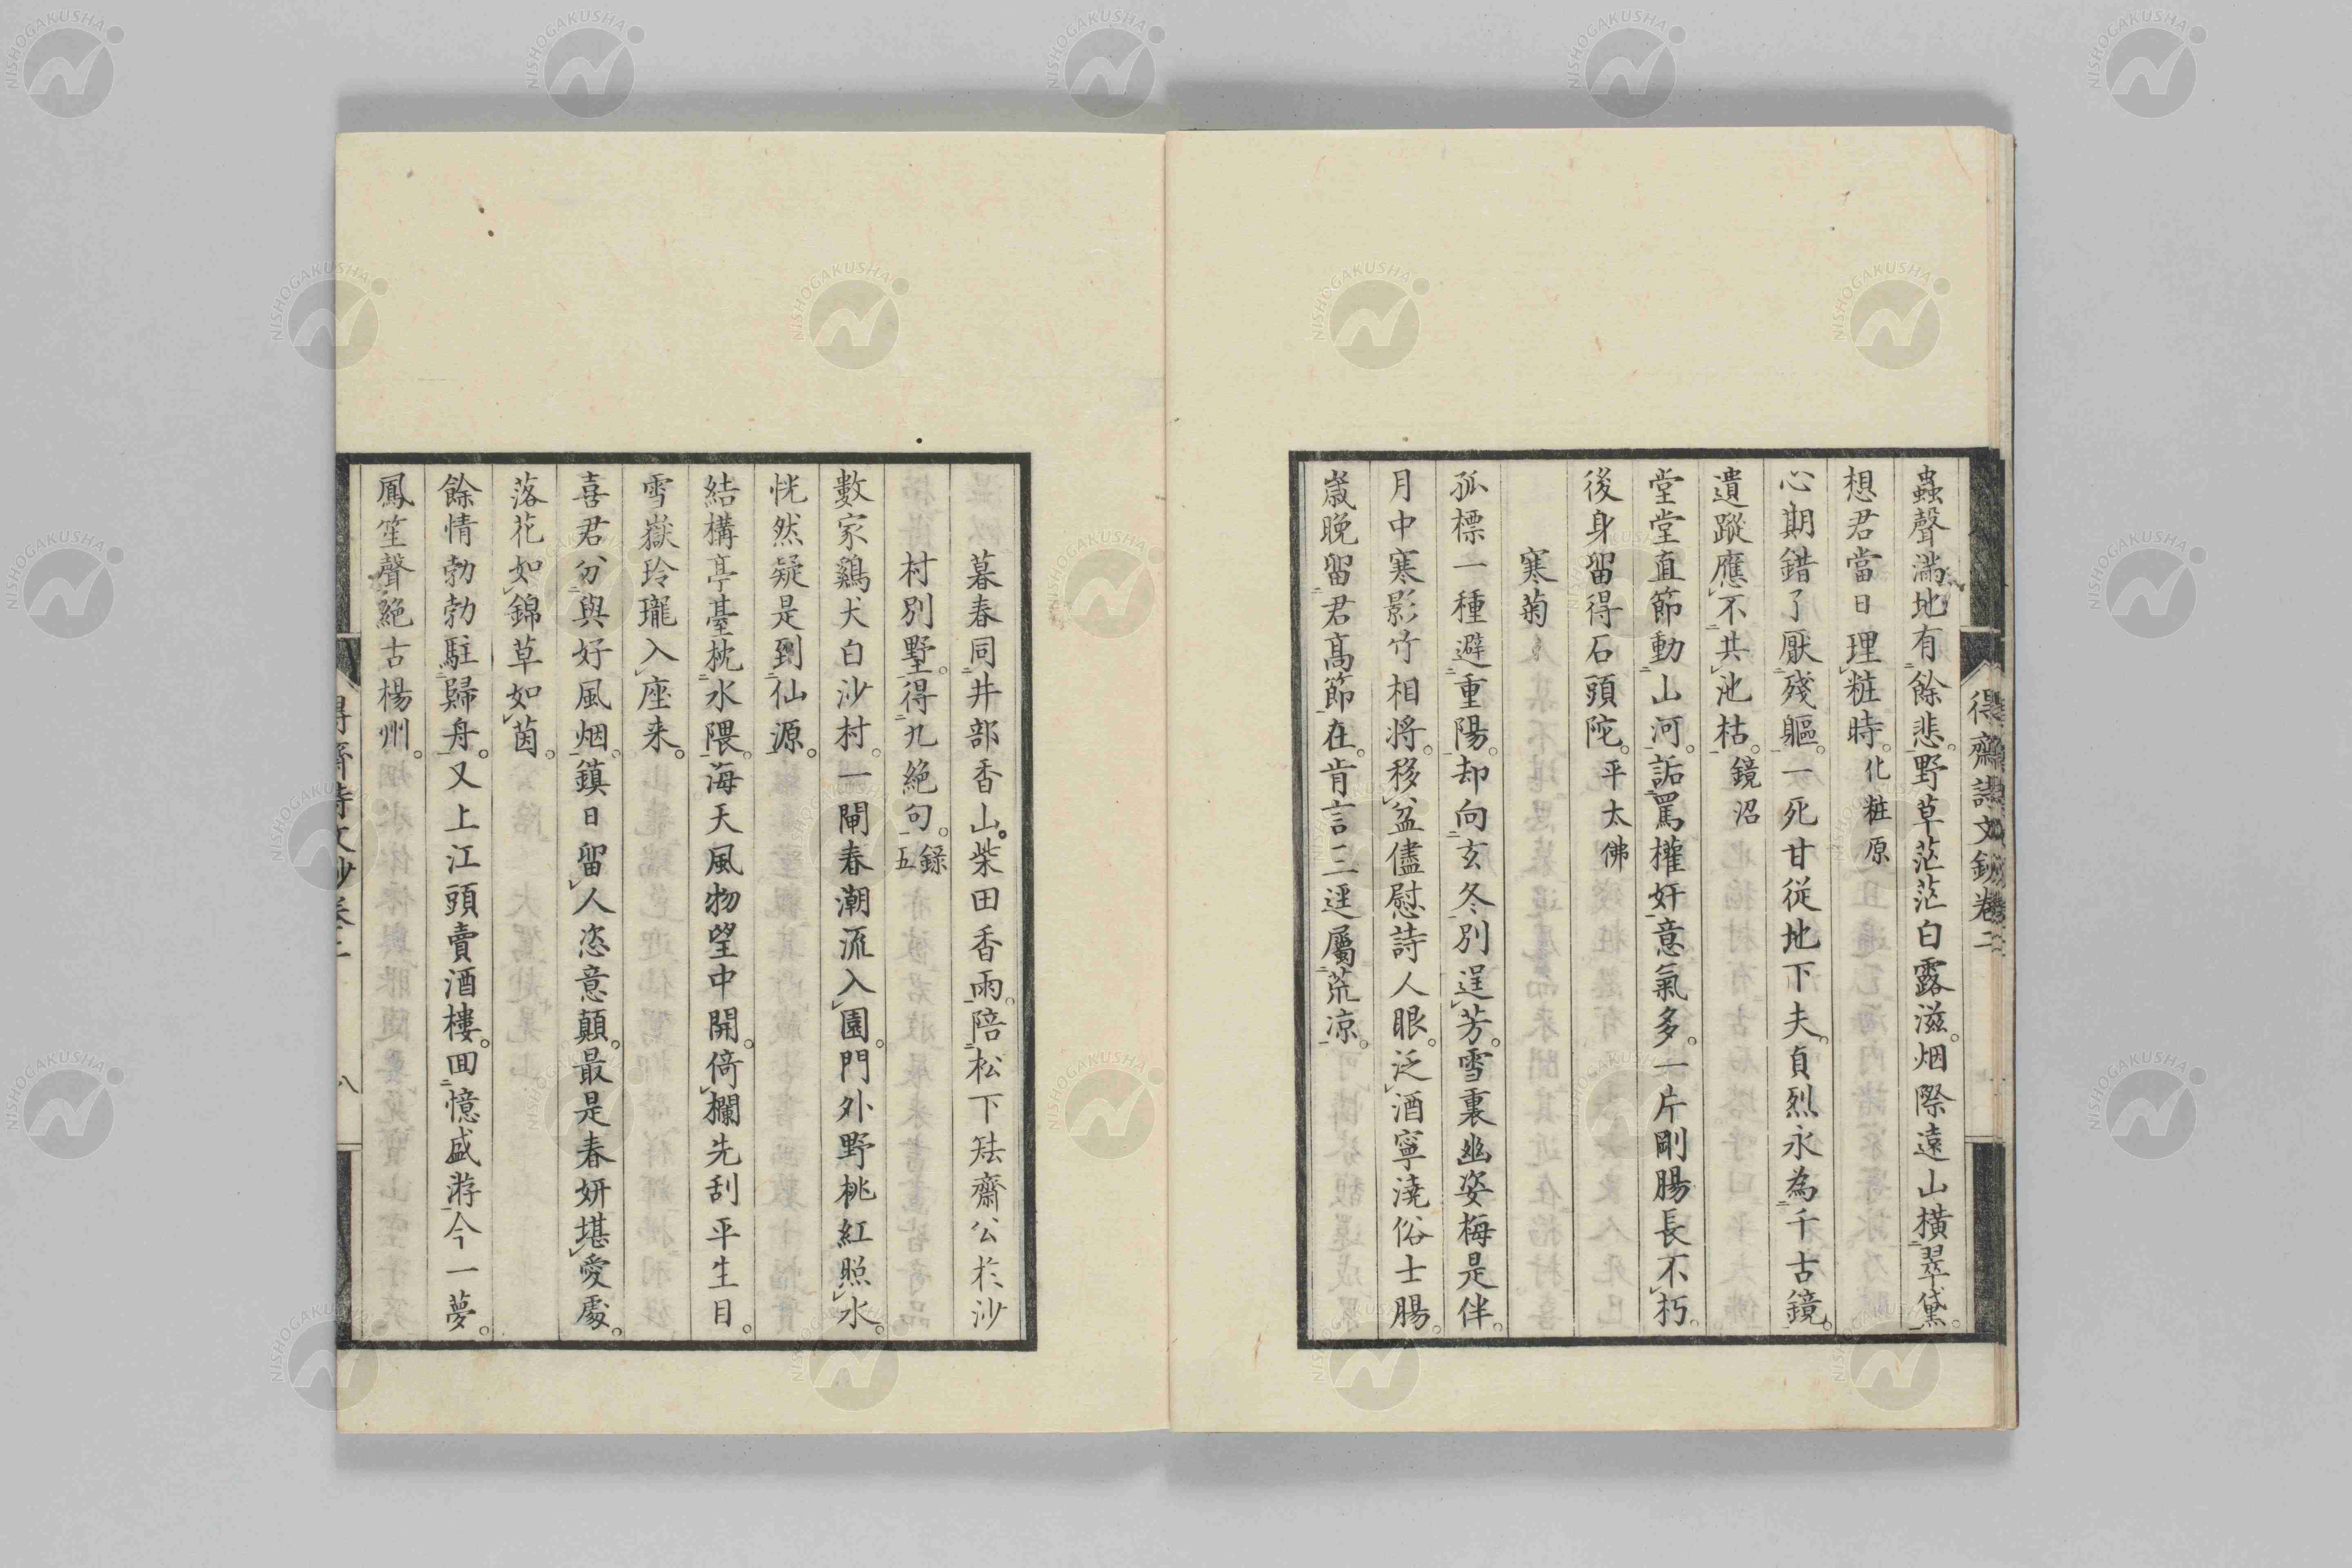 蟲聲滿地有餘悲。野草茫茫白露滋。烟際遠山橫翠黛。
想君當日理粧時。化粧原
心期錯了厭殘軀。一死甘從地下夫。貞烈永為千古鏡。
遺蹤應不共池枯。鏡沼
堂堂直節動山河。詬罵權奸意氣多。一片剛腸長不朽。
後身留得石頭陀。平太佛
寒菊
孤標一種避重陽。却向玄冬別逞芳。雪裏幽姿梅是伴。
月中寒影竹相將。移盆儘慰詩人眼。泛酒寧澆俗士腸。
歲晚留君高節在。肯言三逕屬荒凉。
得齋詩文鈔卷二
暮春同井部香山。柴田香雨。陪松下㷀齋公於沙
村別墅。得九絕句。錄五
數家鷄犬白沙村。一閘春潮流入園。門外野桃紅照水。
恍然疑是到仙源。
結構亭臺枕水隈。海天風物望中開。倚欄先刮平生目。
雪嶽玲瓏入座来。
喜君分與好風烟。鎮日留人恣意顛。最是春妍堪愛處。
落花如錦草如茵。
餘情勃勃駐歸舟。又上江頭賣酒樓。回憶盛游今一夢。
鳳笙聲絕古楊州。
得齋詩文鈔卷二 八